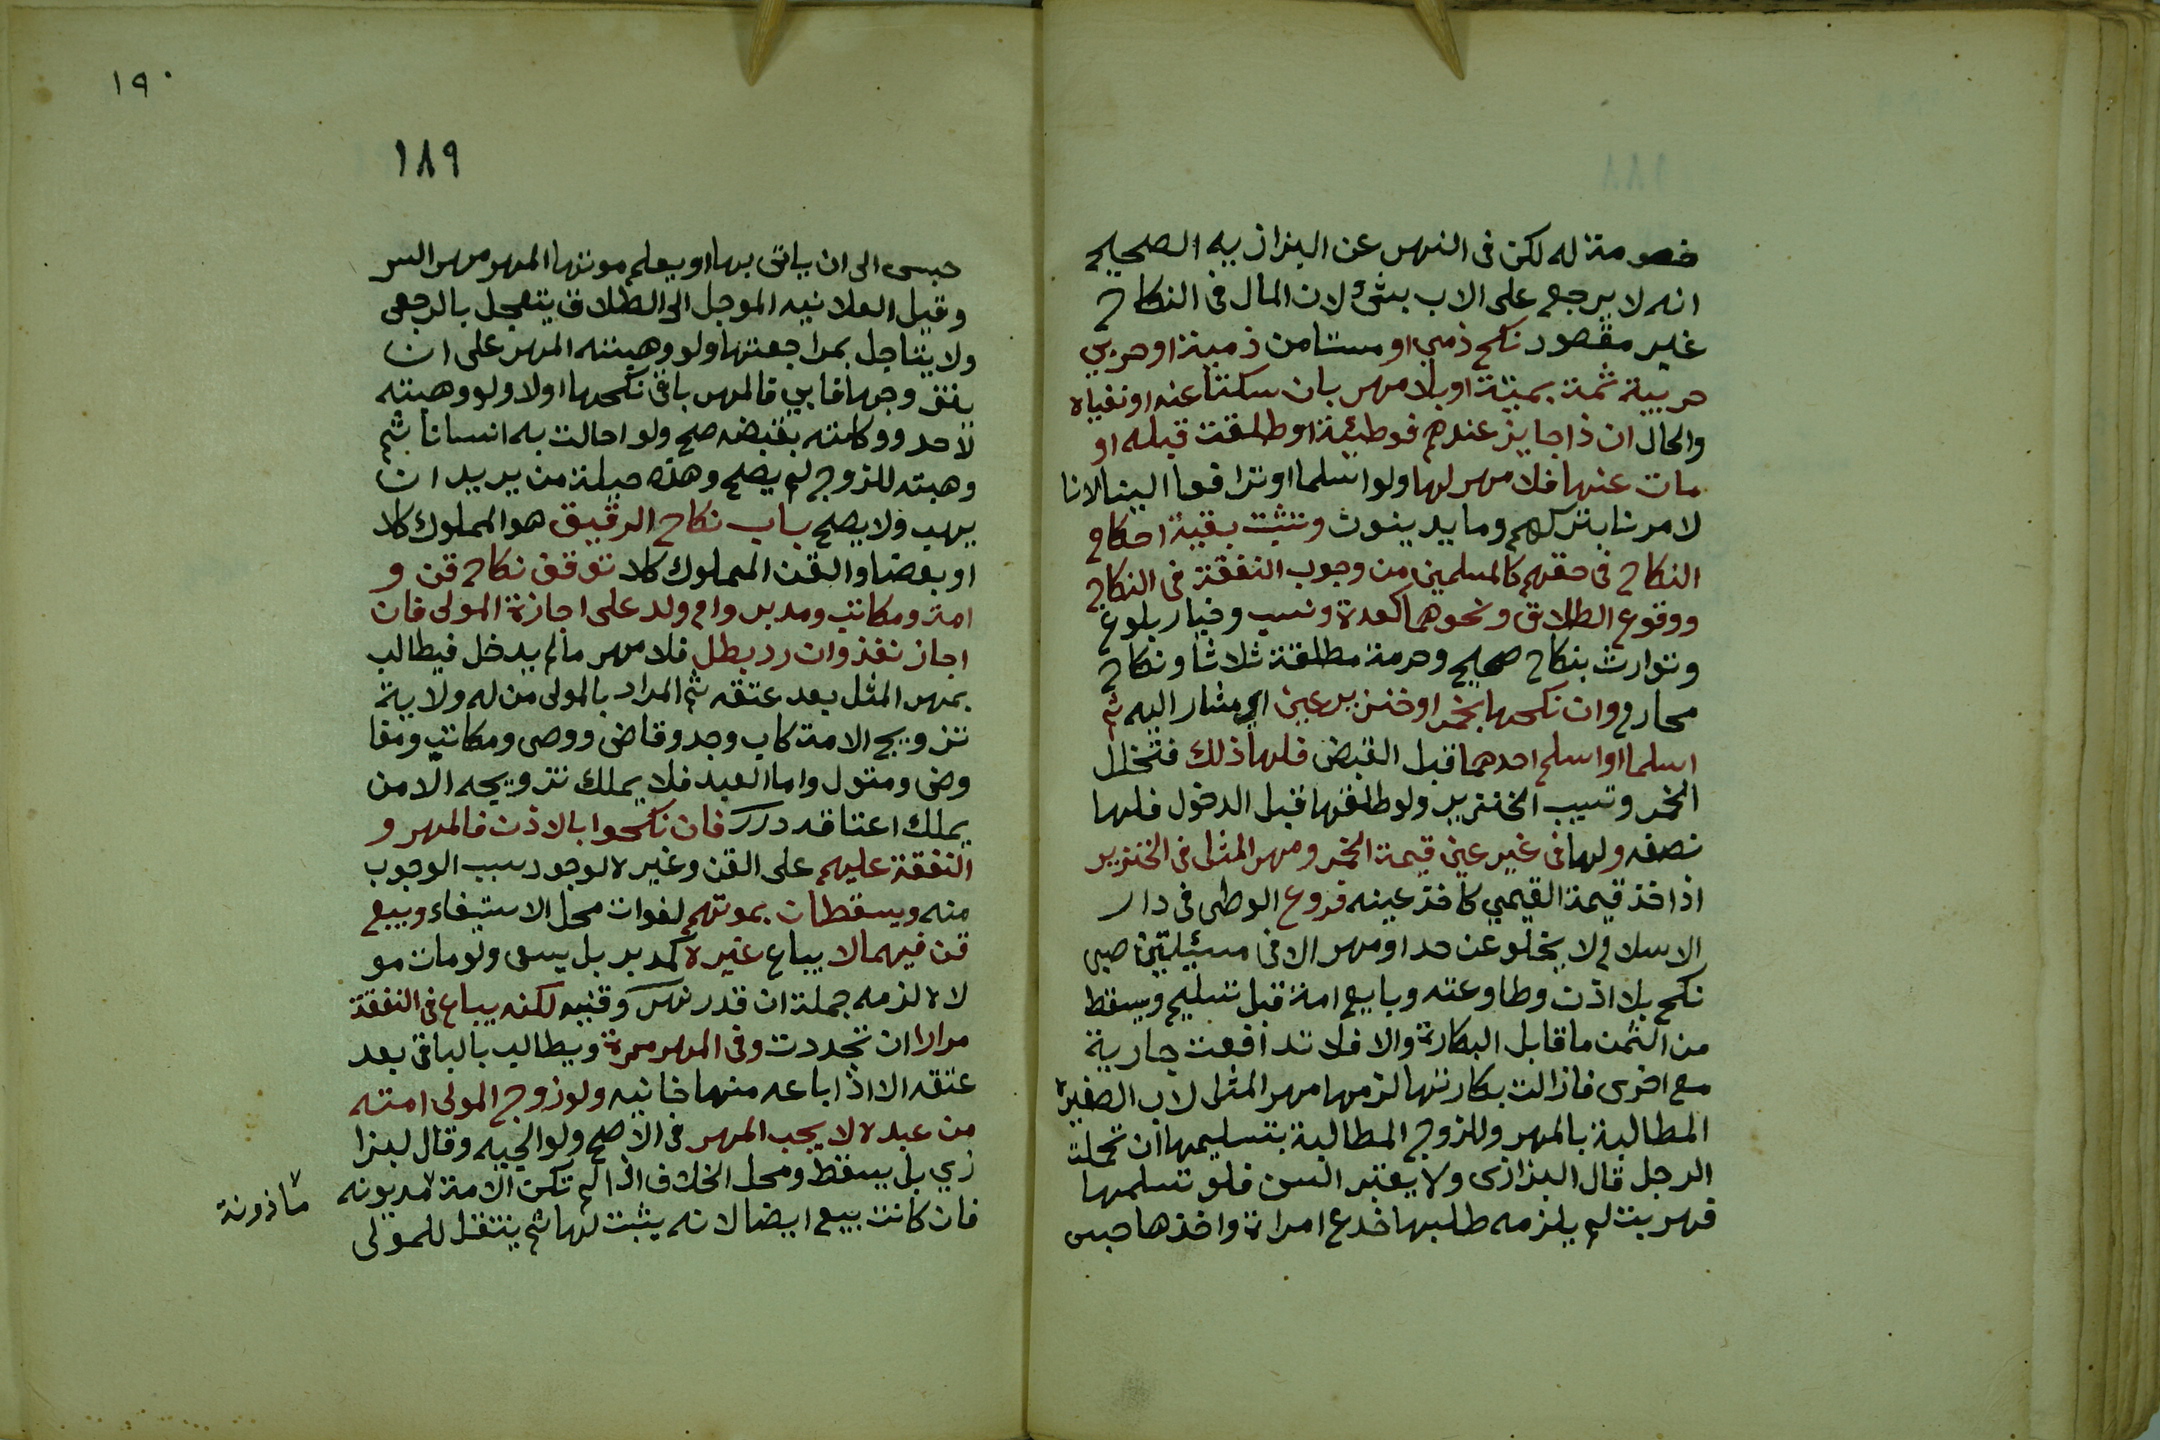 خصومة له لكن فى النهر عن البزازيه الصحيح
انه لا يرجع على الاب بشئ لان المال فى النكاح
غير مقصود نكح ذمي او مستامن ذمية او حربي
حربية ثمة بميتة او بلا مهر بان سكتا عنه او نفياه
والحال ان ذا جايز عندهم فوطئة او طلقت قبله او
مات عنها فلا مهر لها ولو اسلما او ترافعا الينا لانا
لامرنا بتركهم وما يدينون وتثبت بقية احكام
النكاح فى حقهم كالمسلمين من وجوب النفقة فى النكاح
ووقوع الطلاق ونحوهما كعدة ونسب وخيار بلوغ
وتوارث بنكاح صحيح وحرمة مطلقة ثلاثا ونكاح
محارم وان نكحها بخمر او خنزير عين اي مشار اليه ثم
اسلما او اسلم احدهما قبل القبض فلها ذلك فتخلل
الخمر وتسيب الخنزير ولو طلقها قبل الدخول فلها
نصفه ولها فى غير عين قيمة الخمر ومهر المثل فى الخنزير
اذ اخذ قيمة القيمي كاخذ عينه فروع الوطى فى دار
الاسلام لا يخلو عن حد او مهر الا فى مسئيلتين صبى
نكح بلا اذن وطاوعته وبايع امة قبل تسليم ويسقط
من الثمن ما قابل البكارة والا فلا تدافعت جارية
مع اخرى فازالت بكارتها لزمها مهر المثل لاب الصغيرة
المطالبة بالمهر وللزوج المطالبة بتسليمها ان تحملت
الرجل قال البزازى ولا يعتبر السن فلو تسلمها
فهربت لم يلزمه طلبها خدع امراة واخذها حبس
١٩٠
١٨٩
حبس الى ان ياتى بها او يعلم موتها المهر مهر السر
وقيل العلانيه الموجل الى الطلاق يتعجل بالرجعى
ولا يتاجل بمراجعتها ولو وهبته المهر على ان
يتزوجها فابي فالمهر باقى نكحها اولا ولو وهبته
لاحد ووكلته بقبضه صح ولو احالت به انسانا ثم
وهبته للزوج لم يصح وهذه حيلة من يريد ان
يهب ولا يصح باب نكاح الرقيق هو المملوك كلا
او بعضا والقن المملوك كلا توقف نكاح قن و
امة ومكاتب ومدبر وام ولد على اجازة المولى فان
اجاز نفذ وان رد بطل فلا مهر ما لم يدخل فيطالب
بمهر المثل بعد عتقه ثم المراد بالمولى من له ولاية
تزويج الامة كاب وجد وقاضى ووصى ومكاتب ومفا
وضى ومتول واما العبد فلا يملك تزويجه الا من
يملك اعتاقه درر فان نكحوا بالاذن فالمهر و
النفقة عليهم على القن وغيره لوجود سبب الوجوب
منه ويسقطان بموتهم لفوات محل الاستيفاء وبيع
قن فيهما لا يباع غيره كمدبر بل يسعى ولو مات مو
لاه لزمه جملة ان قدر نهر وقنيه لكنه يباع فى النفقة
مرارا ان تجددت وفى المهر مرة ويطالب بالباقى بعد
عتقه الا اذا باعه منها خانيه ولو زوج المولى امته
من عبده لا يجب المهر فى الاصح ولوالجيه وقال لبزا
زي بل يسقط ومحل الخلاف اذا لم تكن الامة مديونه
ماذونة
فان كانت بيع ايضا لانه يثبت لها ثم ينتقل للمولى